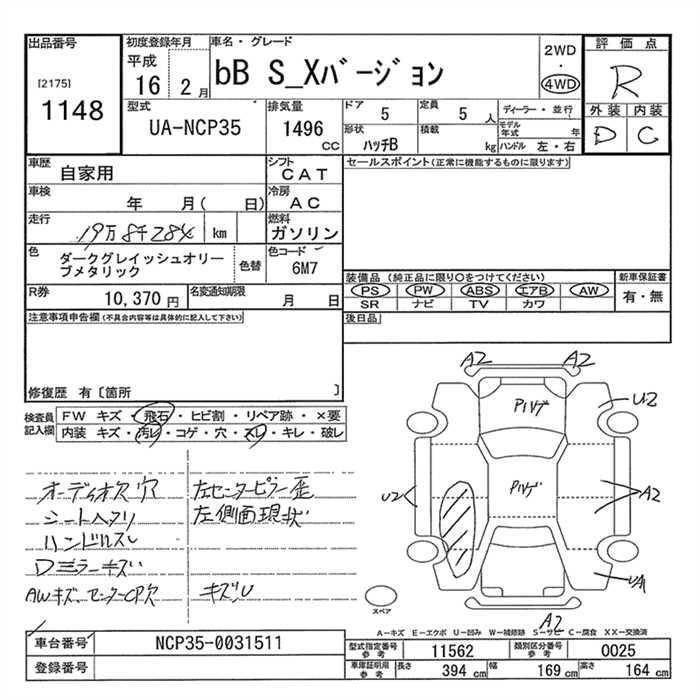 出品番号
[2175]
1148
初度登録年月
平成
16 2月
車名・グレード
bB S_Xバージョン
2WD
4WD
評価点
R
外装 内装
D C
型式
UA-NCP35
排気量
1496
cc
ドア
5
定員
5人
ディーラー・並行
モデル年式 年
形状
ハッチB
積載
kg
ハンドル 左・右
車歴
自家用
シフト
CAT
セールスポイント(正常に機能するものに限ります)
車検
年 月( 日)
冷房
AC
走行
19万8千284 km
燃料
ガソリン
色
ダークグレイッシュオリー
ブメタリック
色替
色コード
6M7
装備品(純正品に限り○をつけてください)
PS PW ABS エアB AW
SR ナビ TV カワ
新車保証書
有・無
R券
10,370 円
名変通知期限
月 日
後日品
注意事項申告欄(不具合内容等は具体的に記入して下さい)
修復歴 有〔箇所 〕
検査員
記入欄
FW キズ・飛石・ヒビ割・リペア跡・×要
内装 キズ・汚レ・コゲ・穴・スレ・キレ・破レ
オーディオ欠 穴
シートヘタリ
ハンドルスレ
Dミラーキズ
AWキズ、センターCP欠
左センターピラー歪
左側面現状
キズU
A2 A2
P1ハゲ
U2
P1ハゲ
U2
A2
UA
A2
スペア
A-キズ E-エクボ U-凹み W-補修跡 S-サビ C-腐食 XX-交換済
車台番号
NCP35-0031511
登録番号
型式指定番号
参考
11562
類別区分番号
参考
0025
車庫証明用
参考
長さ
394 cm
幅
169 cm
高さ
164 cm